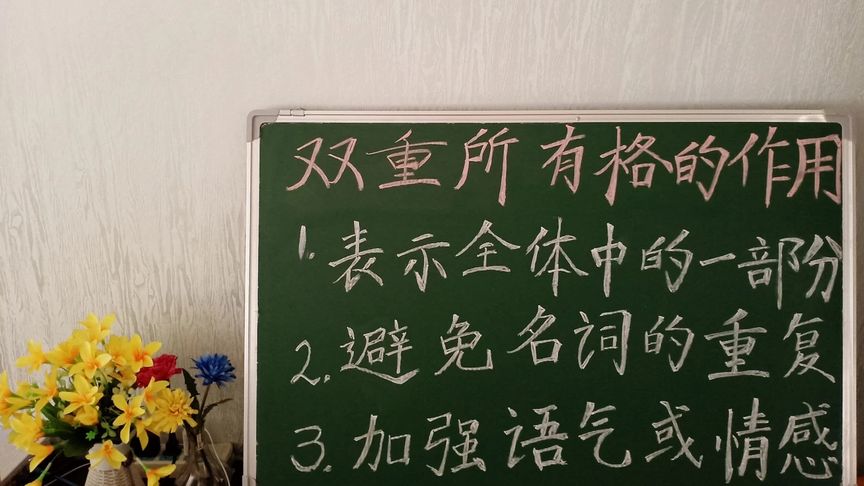 双重所有格的作用
1. 表示全体中的一部份
2. 避免名词的重复
3. 加强语气或情感